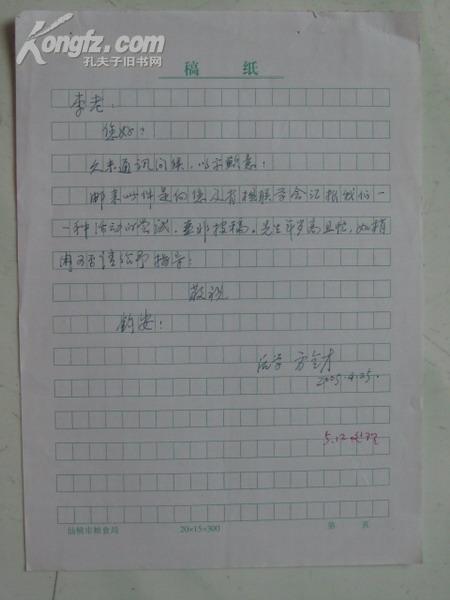 Kongfz.com
孔夫子旧书网
稿 纸
李老:
您好!
久未通讯问候,以示歉意!
邮来此件是向您及省楹联学会汇报我们一
一种活动的尝试,并非投稿。先生年岁高且忙,如稍
闲可否请给予指导!
敬祝
钧安!
方金才
2005.4.25.
5.12
仙桃市粮食局 20×15=300 第 页